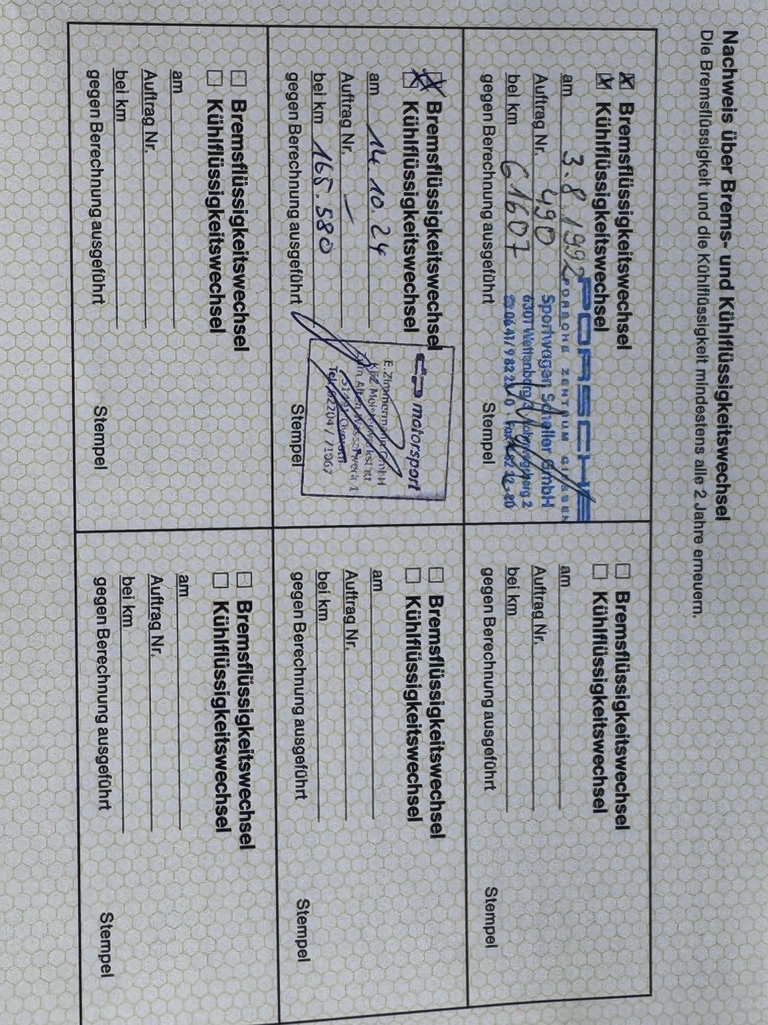 Nachweis über Brems- und Kühlflüssigkeitswechsel
Die Bremsflüssigkeit und die Kühlflüssigkeit mindestens alle 2 Jahre erneuern.
Bremsflüssigkeitswechsel
Kühlflüssigkeitswechsel
am 3.8.1992
Auftrag Nr. 490
bei km 61607
gegen Berechnung ausgeführt
Stempel
PORSCHE
PORSCHE ZENTRUM GIESSEN
Sportwagen GmbH
6301 Wettenberg
Bremsflüssigkeitswechsel
Kühlflüssigkeitswechsel
am
Auftrag Nr.
bei km
gegen Berechnung ausgeführt
Stempel
Bremsflüssigkeitswechsel
Kühlflüssigkeitswechsel
am 14.10.24
Auftrag Nr. –
bei km 165.580
gegen Berechnung ausgeführt
Stempel
cp motorsport
E. Zimmermann GmbH
Tel. 02204 / 71063
Bremsflüssigkeitswechsel
Kühlflüssigkeitswechsel
am
Auftrag Nr.
bei km
gegen Berechnung ausgeführt
Stempel
Bremsflüssigkeitswechsel
Kühlflüssigkeitswechsel
am
Auftrag Nr.
bei km
gegen Berechnung ausgeführt
Stempel
Bremsflüssigkeitswechsel
Kühlflüssigkeitswechsel
am
Auftrag Nr.
bei km
gegen Berechnung ausgeführt
Stempel